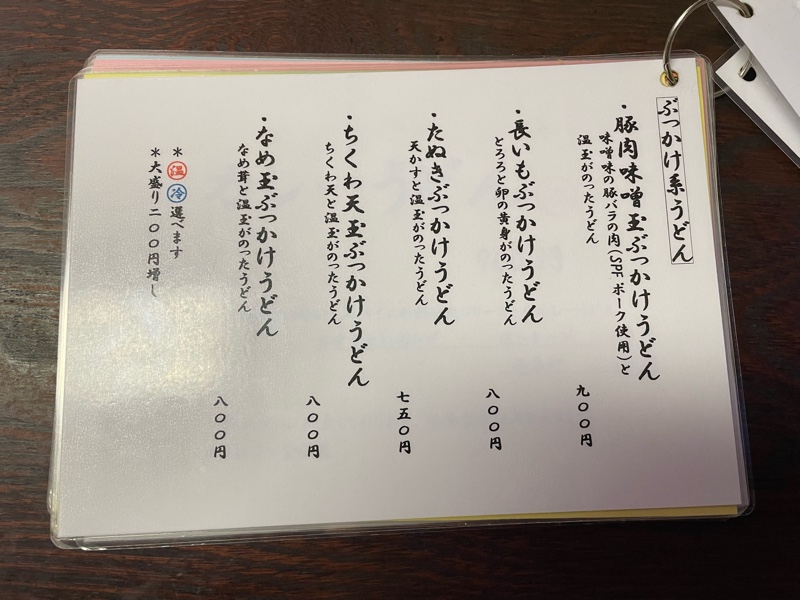 ぶっかけ系うどん
・豚肉味噌玉ぶっかけうどん
味噌味の豚バラの肉(SPFポーク使用)と
温玉がのったうどん
九〇〇円
・長いもぶっかけうどん
とろろと卵の黄身がのったうどん
八〇〇円
・たぬきぶっかけうどん
天かすと温玉がのったうどん
七五〇円
・ちくわ天玉ぶっかけうどん
ちくわ天と温玉がのったうどん
八〇〇円
・なめ玉ぶっかけうどん
なめ茸と温玉がのったうどん
八〇〇円
＊温冷選べます
＊大盛り二〇〇円増し